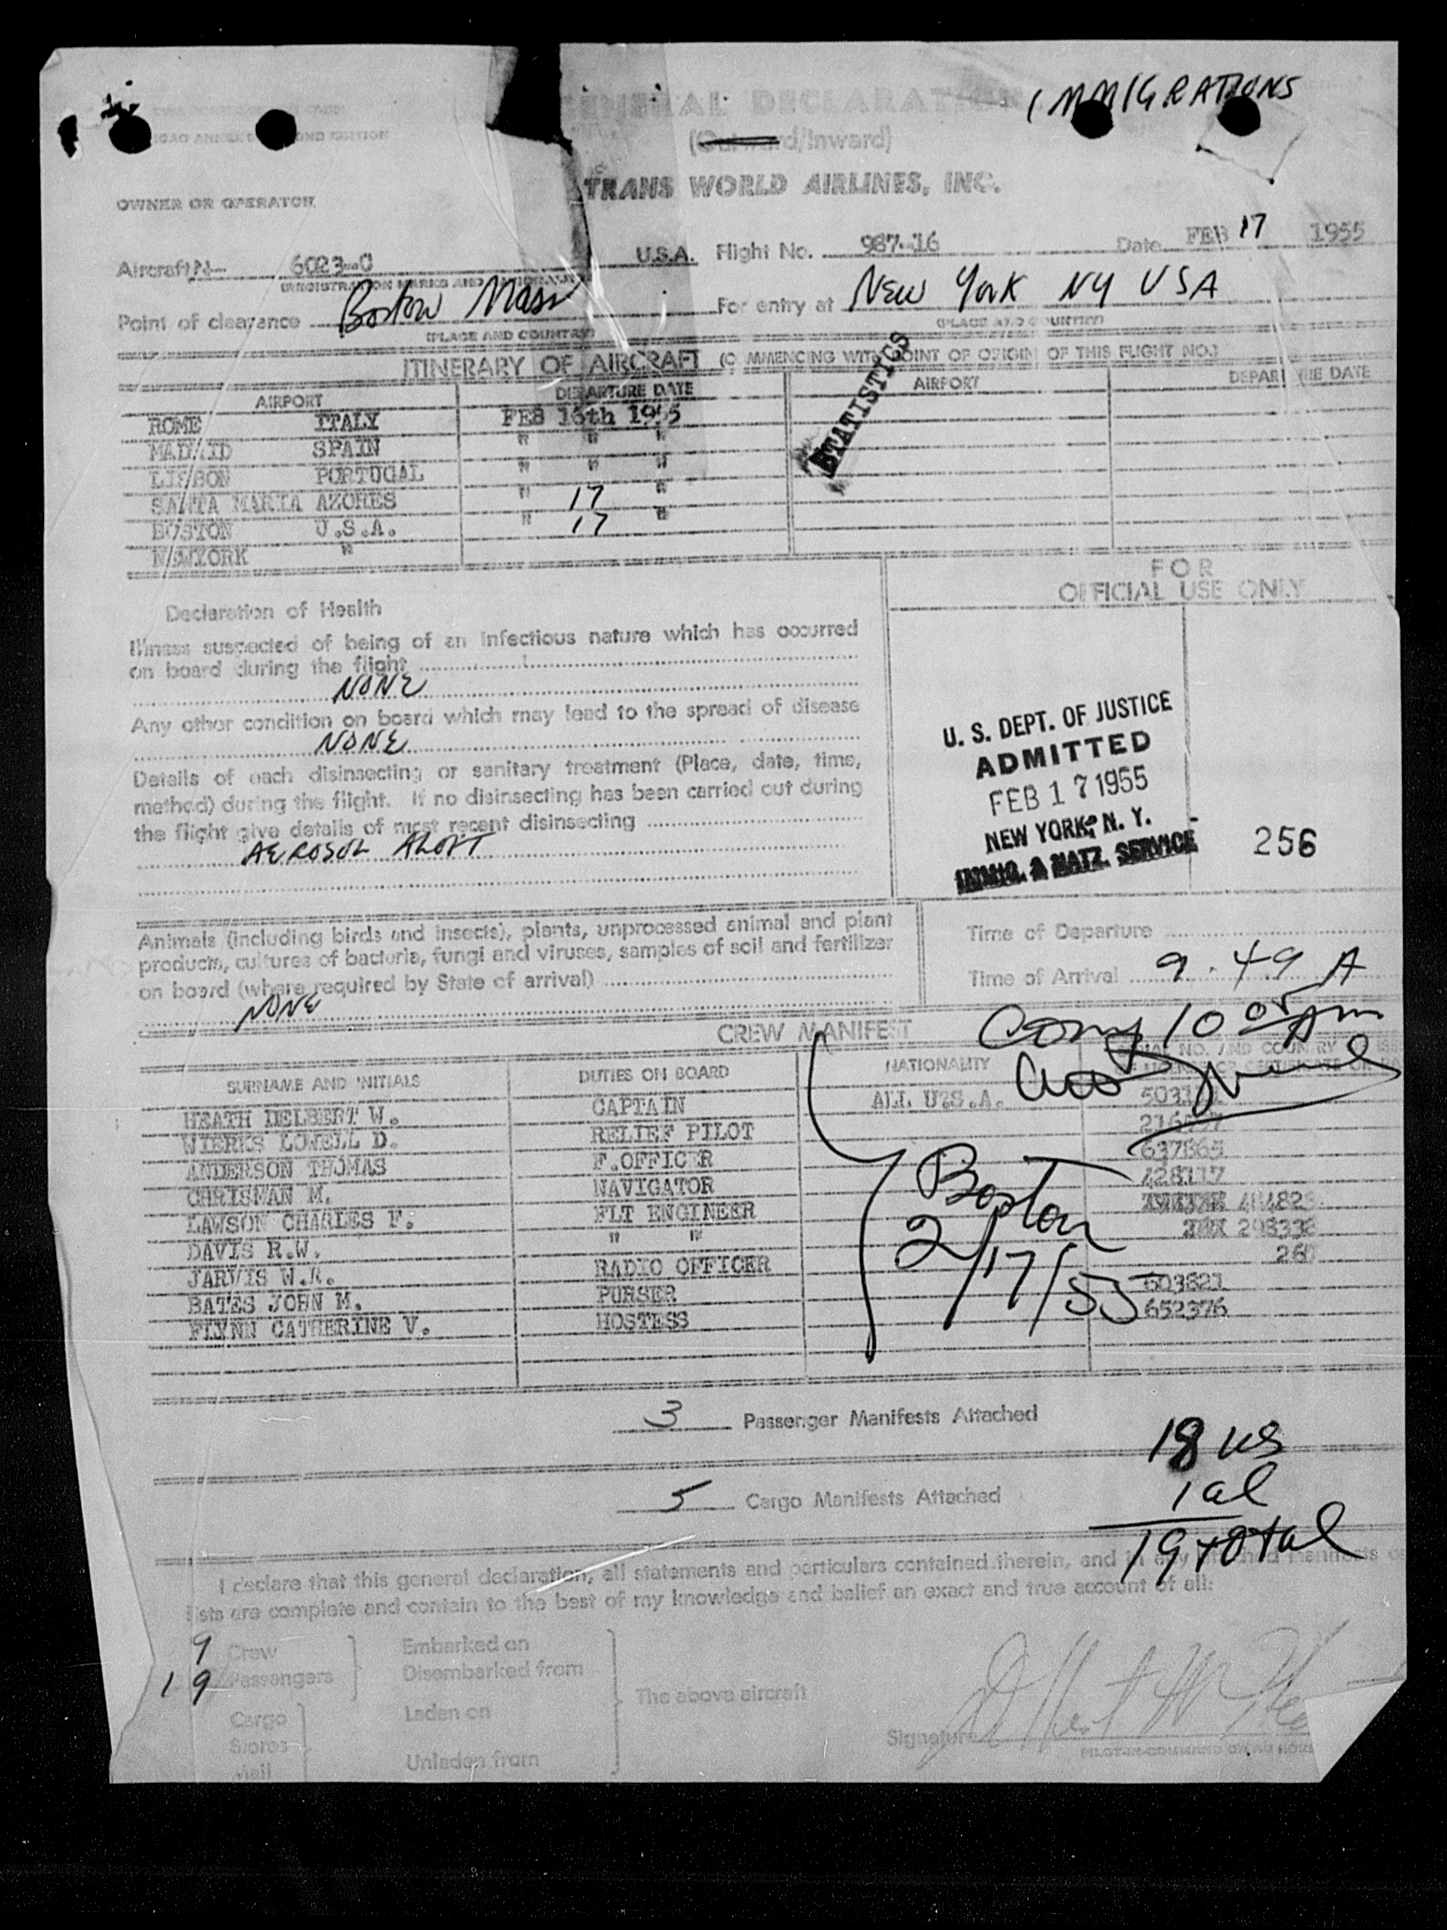 IMMIGRATIONS
ICAO ANNEX SECOND EDITION
GENERAL DECLARATION
(Outward/Inward)
TRANS WORLD AIRLINES, INC.
OWNER OR OPERATOR
Aircraft N- 6023-C U.S.A. Flight No. 987-16 Date FEB 17 1955
(REGISTRATION MARKS AND
Point of clearance Boston Mass For entry at New York NY USA
(PLACE AND COUNTRY) (PLACE AND COUNTRY)
ITINERARY OF AIRCRAFT (COMMENCING WITH POINT OF ORIGIN OF THIS FLIGHT NO.)
AIRPORT DEPARTURE DATE AIRPORT DEPARTURE DATE
STATISTICS
ROME ITALY FEB 16th 1955
MADRID SPAIN " " "
LISBON PORTUGAL " " "
SANTA MARIA AZORES " 17 "
BOSTON U.S.A. " 17 "
NEWYORK "
FOR
OFFICIAL USE ONLY
Declaration of Health
Illness suspected of being of an infectious nature which has occurred
on board during the flight
NONE
Any other condition on board which may lead to the spread of disease
NONE
Details of each disinsecting or sanitary treatment (Place, date, time,
method) during the flight. If no disinsecting has been carried out during
the flight give details of most recent disinsecting
AEROSOL ALOFT
U. S. DEPT. OF JUSTICE
ADMITTED
FEB 17 1955
NEW YORK, N. Y.
IMMIG. & NATZ. SERVICE
256
Animals (including birds and insects), plants, unprocessed animal and plant
products, cultures of bacteria, fungi and viruses, samples of soil and fertilizer
on board (where required by State of arrival)
NONE
Time of Departure
Time of Arrival 9.49 A
10 05 Am
CREW MANIFEST
SURNAME AND INITIALS DUTIES ON BOARD NATIONALITY
HEATH DELBERT W. CAPTAIN ALL U.S.A.
WIERKS LOWELL D. RELIEF PILOT
ANDERSON THOMAS F.OFFICER 637865
CHRISMAN M. NAVIGATOR 428117
LAWSON CHARLES F. FLT ENGINEER
DAVIS R.W. " "
JARVIS W.R. RADIO OFFICER
BATES JOHN M. PURSER 603821
FLYNN CATHERINE V. HOSTESS 652376
Boston
2/17/55
3 Passenger Manifests Attached
5 Cargo Manifests Attached
18 US
1 al
19 total
I declare that this general declaration, all statements and particulars contained therein, and in any attached manifests or
lists are complete and contain to the best of my knowledge and belief an exact and true account of all:
9 Crew
19 Passengers
Embarked on
Disembarked from
Cargo
Stores
Mail
Laden on
Unladen from
The above aircraft
Signature Delbert W Heath
PILOT-IN-COMMAND